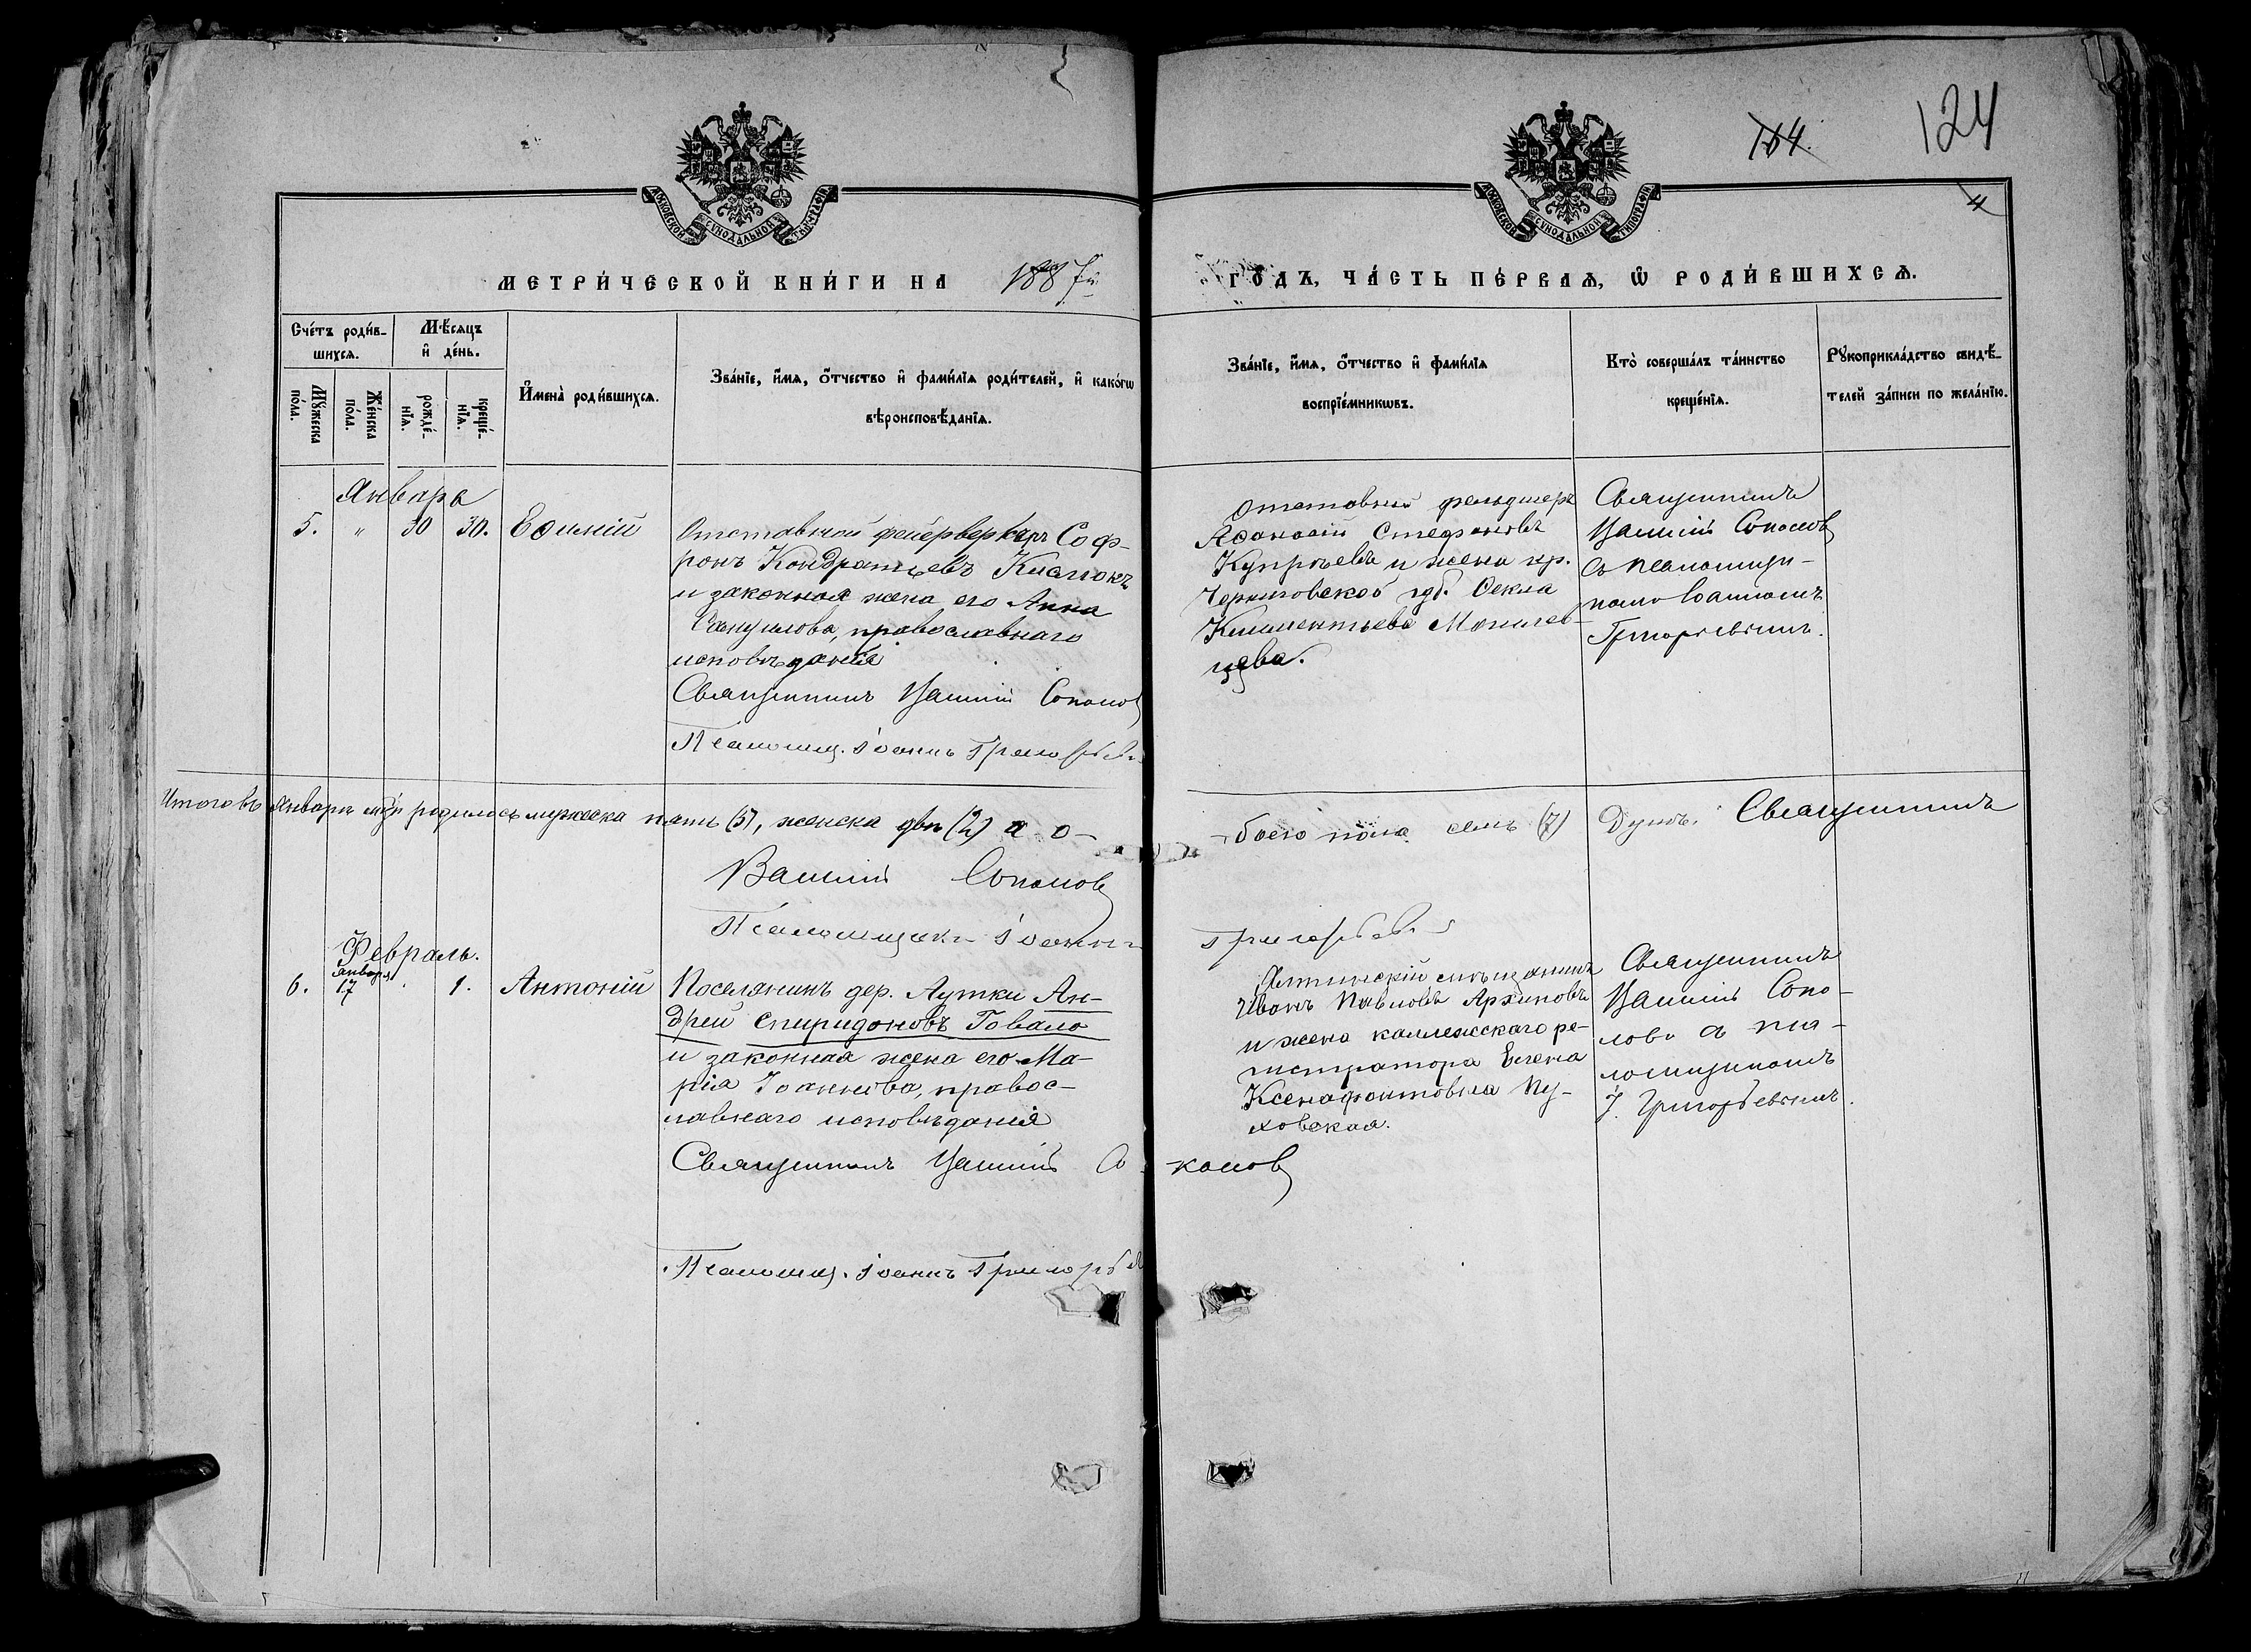 104.
124
4
МОСКОВСКОЙ СѴНОДАЛЬНОЙ ТИПОГРАФІИ
МОСКОВСКОЙ СѴНОДАЛЬНОЙ ТИПОГРАФІИ
МЕТРИ́ЧЕСКОЙ КНИ́ГИ НА 1887 й
ГО́ДЪ, ЧА́СТЬ ПЕ́РВАѦ, Ѡ҆ РОДИ́ВШИХСѦ.
Сче́тъ роди́в-
шихсѧ.
Мꙋ́жеска
по́ла.
Же́нска
по́ла.
Мѣ́сѧцъ
и҆ де́нь.
рожде́-
нїѧ.
креще́-
нїѧ.
И҆мена̀ роди́вшихсѧ.
Зва́нїе, и҆́мѧ, ѻ҆́тчество и҆ фами́лїѧ роди́телей, и҆ како́гѡ
вѣроисповѣ́данїѧ.
Зва́нїе, и҆́мѧ, ѻ҆́тчество и҆ фами́лїѧ
воспрїе́мникѡвъ.
Кто̀ соверша́лъ та́инство
креще́нїѧ.
Рꙋкоприкла́дство свидѣ́-
телей за́писи по жела́нїю.
Январь
5. " 30 30. Еѳимій
Отставной фейерверкеръ Соф-
ронъ Кондратьевъ Кислюкъ
и законная жена его Анна
Самуилова, православнаго
исповѣданія
Священникъ Василій Соколов
Псаломщ. Іоаннъ Григорьев
Отставный фельдшеръ
Аѳанасій Стефановъ
Купрѣевъ и жена кр.
Черниговской губ. Ѳекла
Климентьева Могилев-
цева.
Священникъ
Василій Соколовъ
съ псаломщи-
комъ Іоанномъ
Григорьевымъ.
Итого въ Январѣ мцѣ родилось мужеска пять (5), женска две (2) а о-
-боего пола семь (7) душъ. Священникъ
Василій Соколов
Псаломщикъ Іоаннъ
Григорьевъ
Февраль.
6. Января 17 . 1. Антоній
Поселянинъ дер. Аутки Ан-
дрей Спиридоновъ Говало
и законная жена его Ма-
рія Іоаннова, правос-
лавнаго исповѣданія
Священникъ Василій Со-
коловъ
Псаломщ. Іоаннъ Григорьев
Ялтинскій мѣщанинъ
Иванъ Павловъ Архиповъ
и жена коллежскаго ре-
гистратора Елена
Ксенофонтовна Пу-
ховская.
Священникъ
Василій Соко-
ловъ съ пса-
ломщикомъ
І. Григорьевымъ.